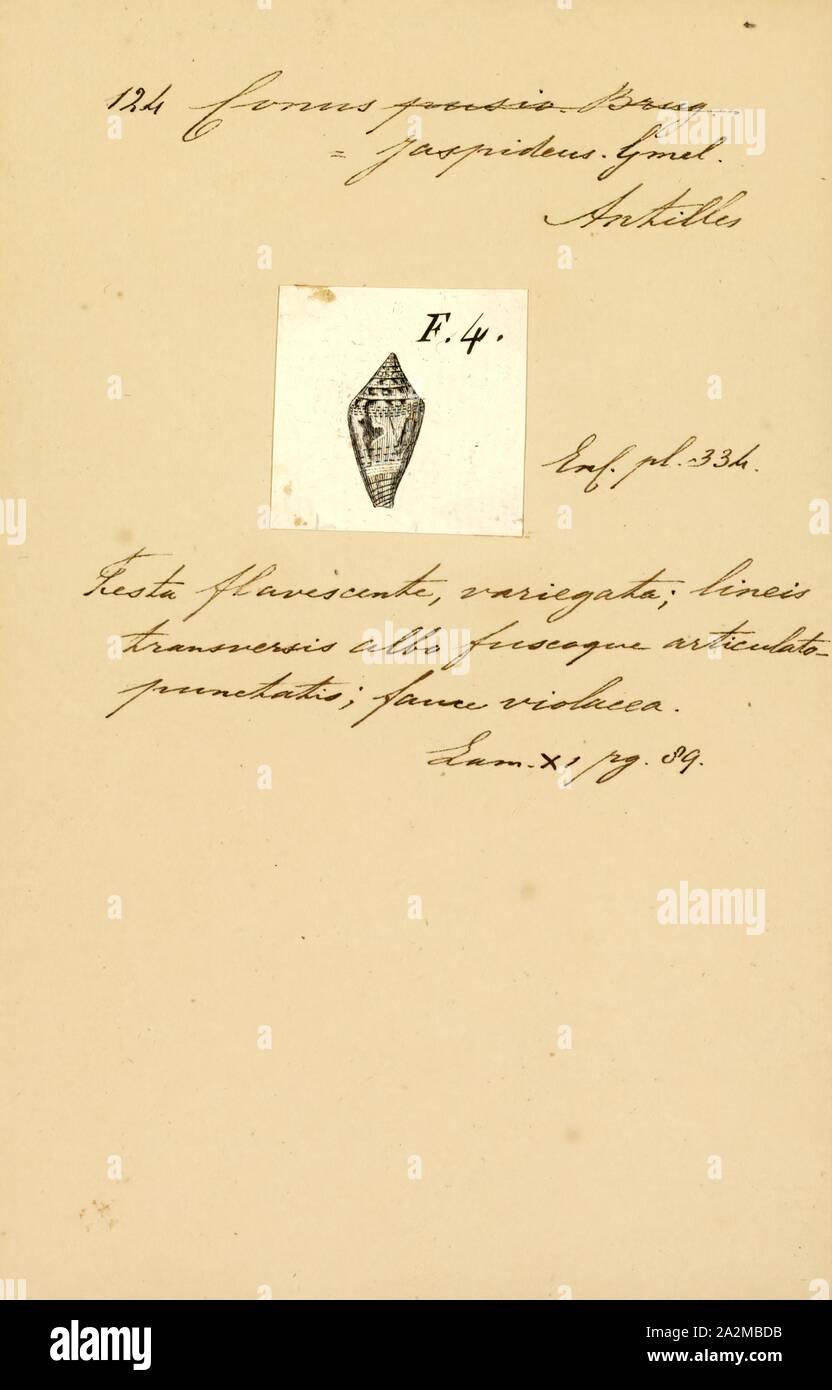 124 Conus pusio. Brug.
= Jaspideus. Gmel.
Antilles
F. 4.
Enc. pl. 334.
Testa flavescente, variegata; lineis
transversis albo fuscoque articulato-
punctatis; fauce violacea.
Lam. XI pg. 89.
alamy
Image ID: 2A2MBDB
www.alamy.com